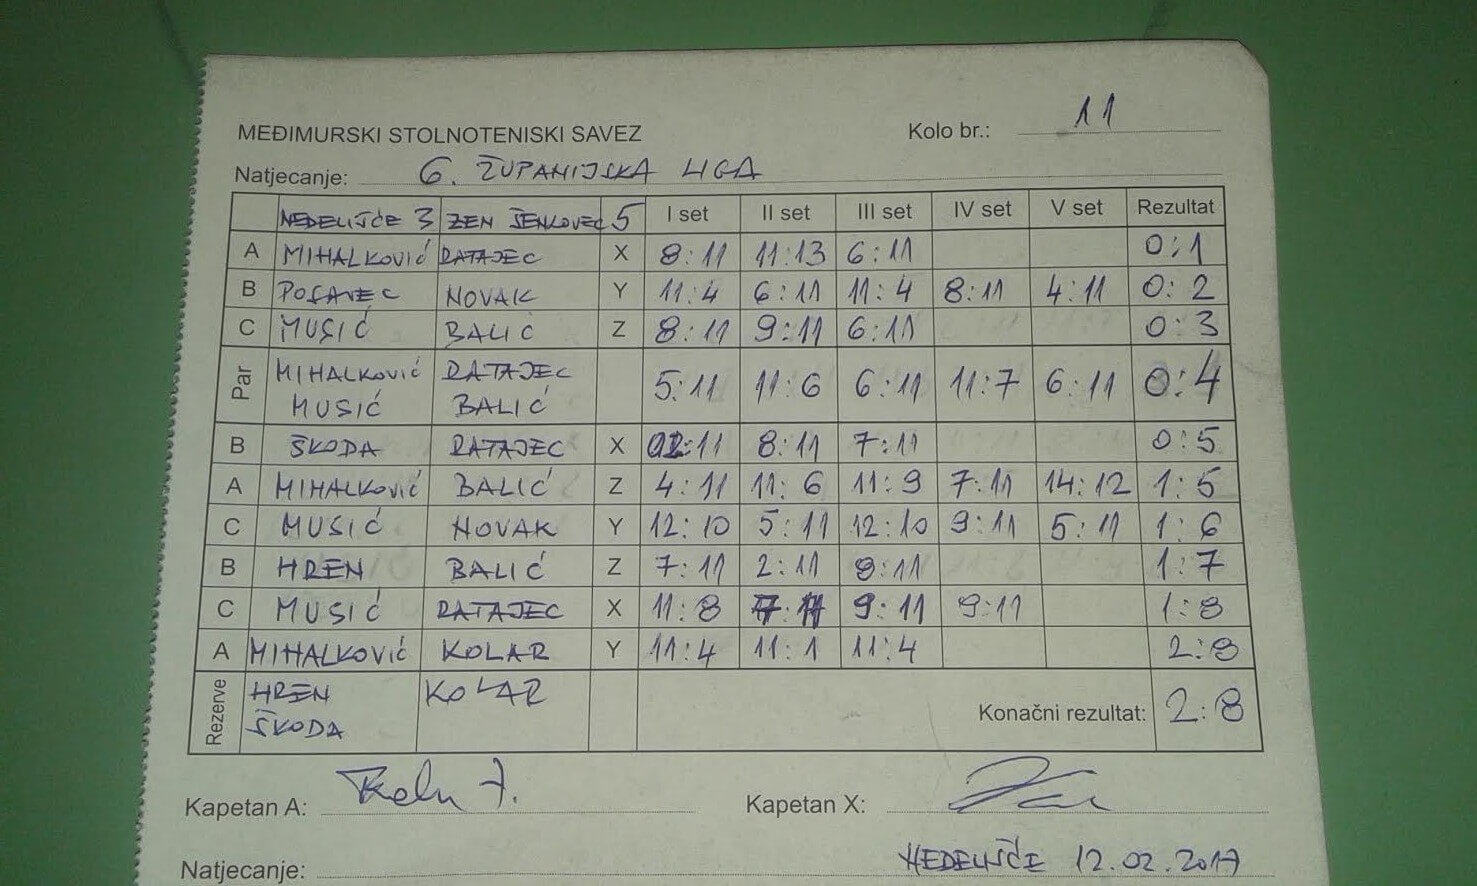 MEĐIMURSKI STOLNOTENISKI SAVEZ Kolo br.: 11
Natjecanje: 6. ŽUPANIJSKA LIGA
NEDELIŠĆE 3 ZEN ŠENKOVEC 5 I set II set III set IV set V set Rezultat
A MIHALKOVIĆ RATAJEC X 8:11 11:13 6:11 0:1
B POSAVEC NOVAK Y 11:4 6:11 11:4 8:11 4:11 0:2
C MUSIĆ BALIĆ Z 8:11 9:11 6:11 0:3
Par MIHALKOVIĆ RATAJEC 5:11 11:6 6:11 11:7 6:11 0:4
MUSIĆ BALIĆ
B ŠKODA RATAJEC X :11 8:11 7:11 0:5
A MIHALKOVIĆ BALIĆ Z 4:11 11:6 11:9 7:11 14:12 1:5
C MUSIĆ NOVAK Y 12:10 5:11 12:10 9:11 5:11 1:6
B HREN BALIĆ Z 7:11 2:11 9:11 1:7
C MUSIĆ RATAJEC X 11:8 7:11 9:11 9:11 1:8
A MIHALKOVIĆ KOLAR Y 11:4 11:1 11:4 2:8
Rezerve HREN KOLAR Konačni rezultat: 2:8
ŠKODA
Kapetan A: Kapetan X:
Natjecanje: NEDELIŠĆE 12.02.2017